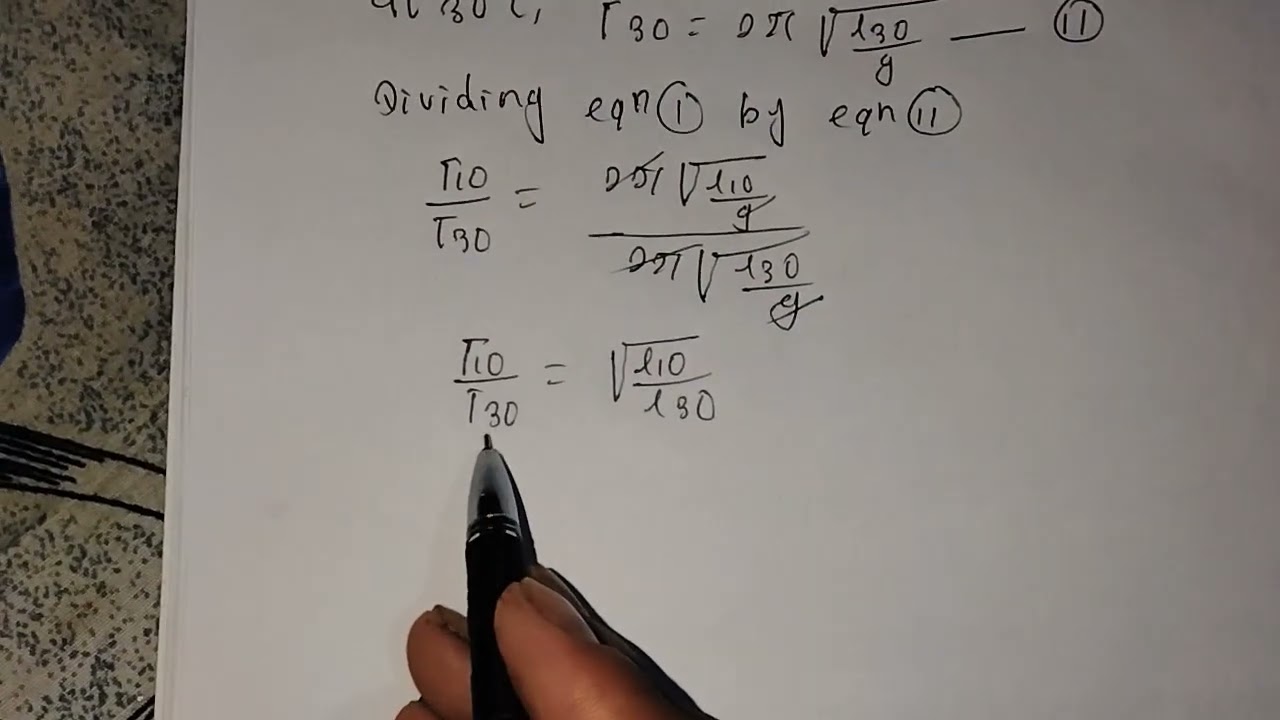 At 30°C, T30 = 2π √l30/g — II
Dividing eqn I by eqn II
T10/T30 = 2π√l10/g / 2π√l30/g
T10/T30 = √l10/l30